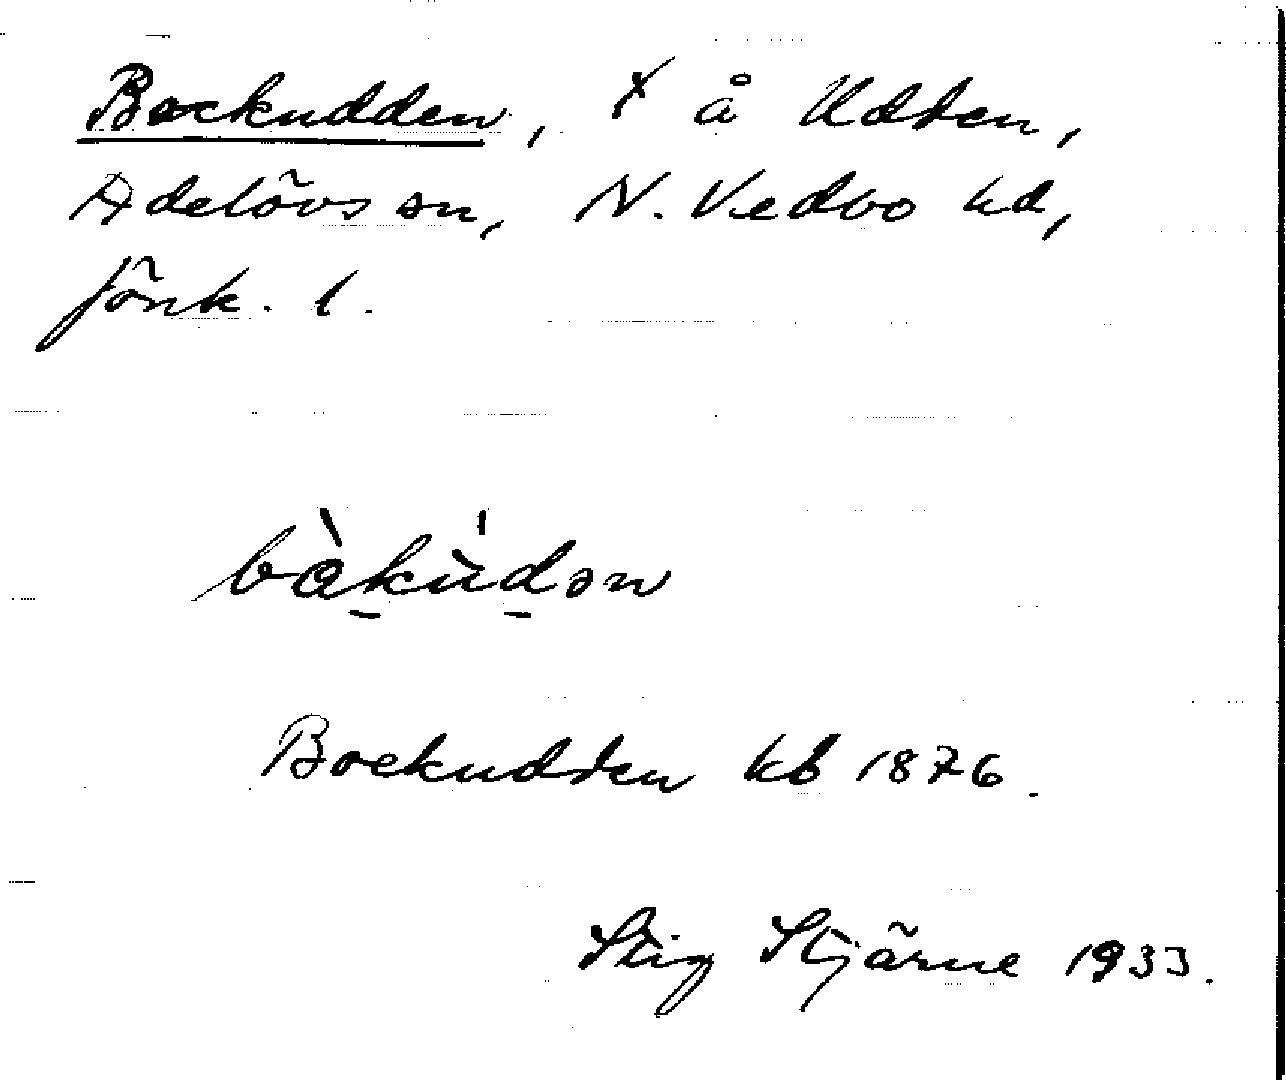 Bockudden, x å Udden,
Adelövs sn, N. Vedbo hd,
Jönk. l.
bàkùdən
Bockudden kb 1876.
Stig Stjärne 1933.